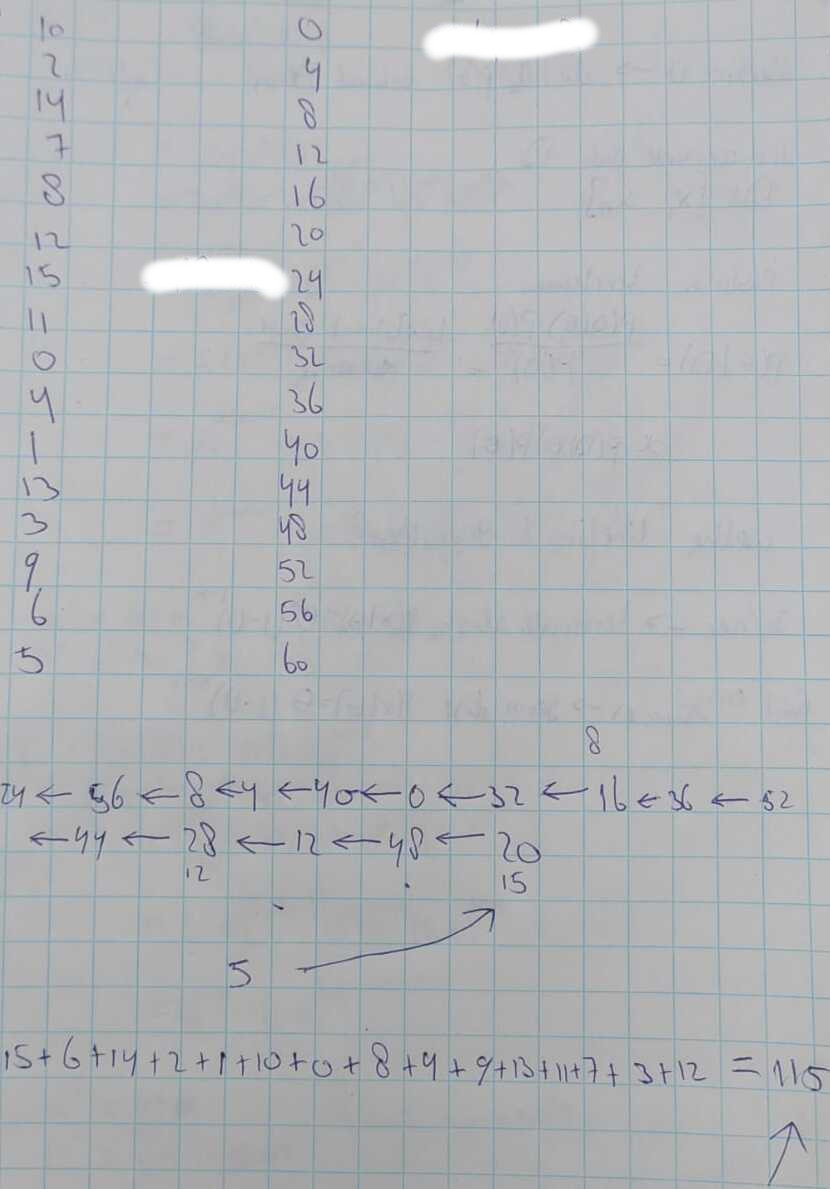 10 0
2 4
14 8
7 12
8 16
12 20
15 24
11 28
0 32
4 36
1 40
13 44
3 48
9 52
6 56
5 60
8
24 ← 56 ← 8 ← 4 ← 40 ← 0 ← 32 ← 16 ← 36 ← 52
← 44 ← 28 ← 12 ← 48 ← 20
12 15
5
15+6+14+2+1+10+0+8+4+9+13+11+7+3+12 = 115